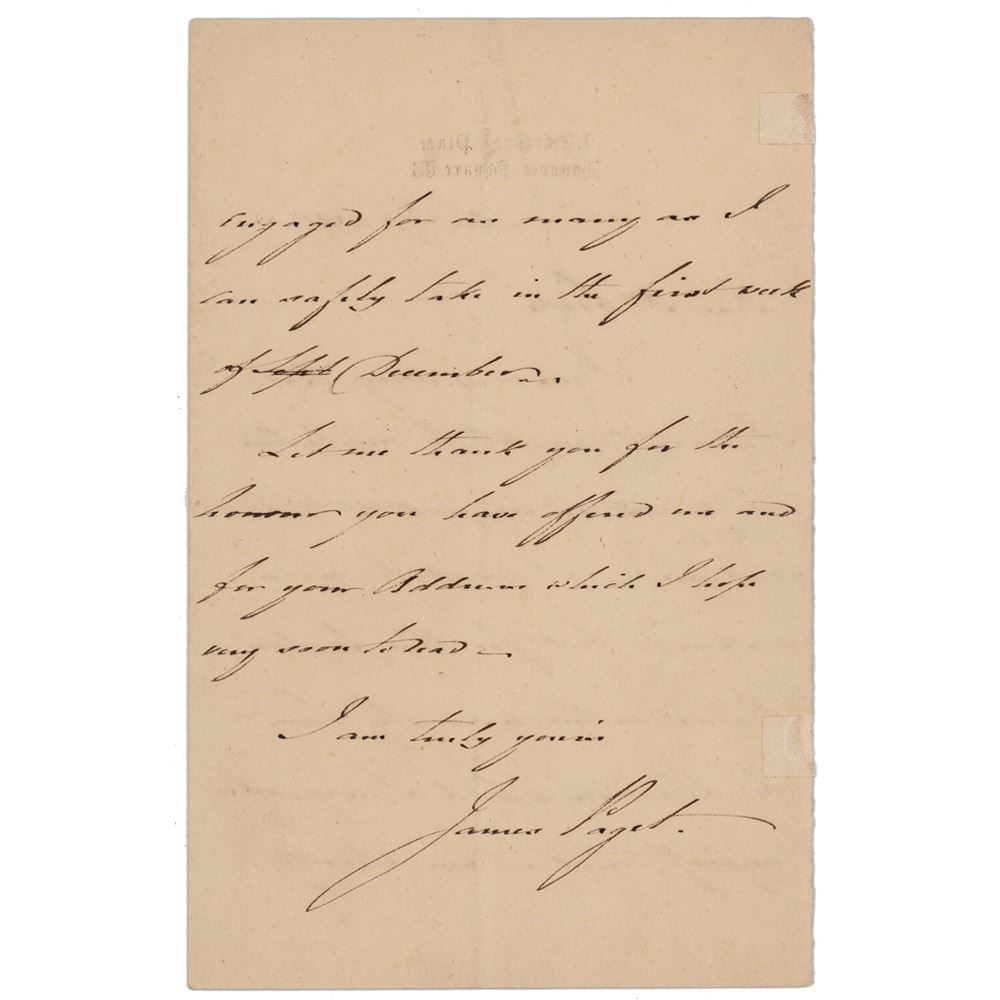 engaged for as many as I
can safely take in the first week
of Sept December.
Let me thank you for the
honour you have offered me and
for your Address which I hope
very soon to read—
I am truly yours
James Paget.